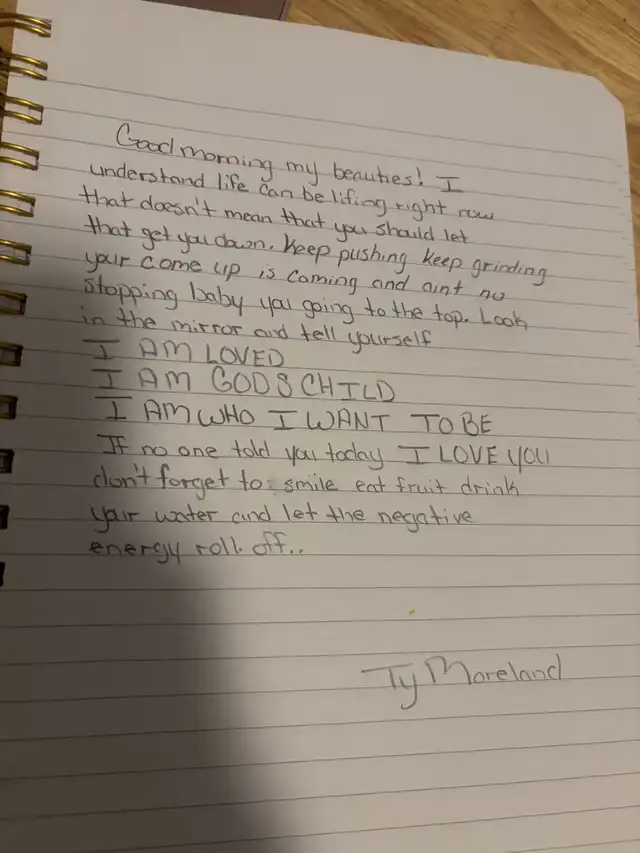 Good morning my beauties! I
understand life can be lifing right now
that doesn't mean that you should let
that get you down. Keep pushing keep grinding
your come up is coming and aint no
stopping baby you going to the top. Look
in the mirror and tell yourself
I AM LOVED
I AM GODS CHILD
I AM WHO I WANT TO BE
If no one told you today I LOVE YOU
don't forget to: smile eat fruit drink
your water and let the negative
energy roll off..
Ty Moreland